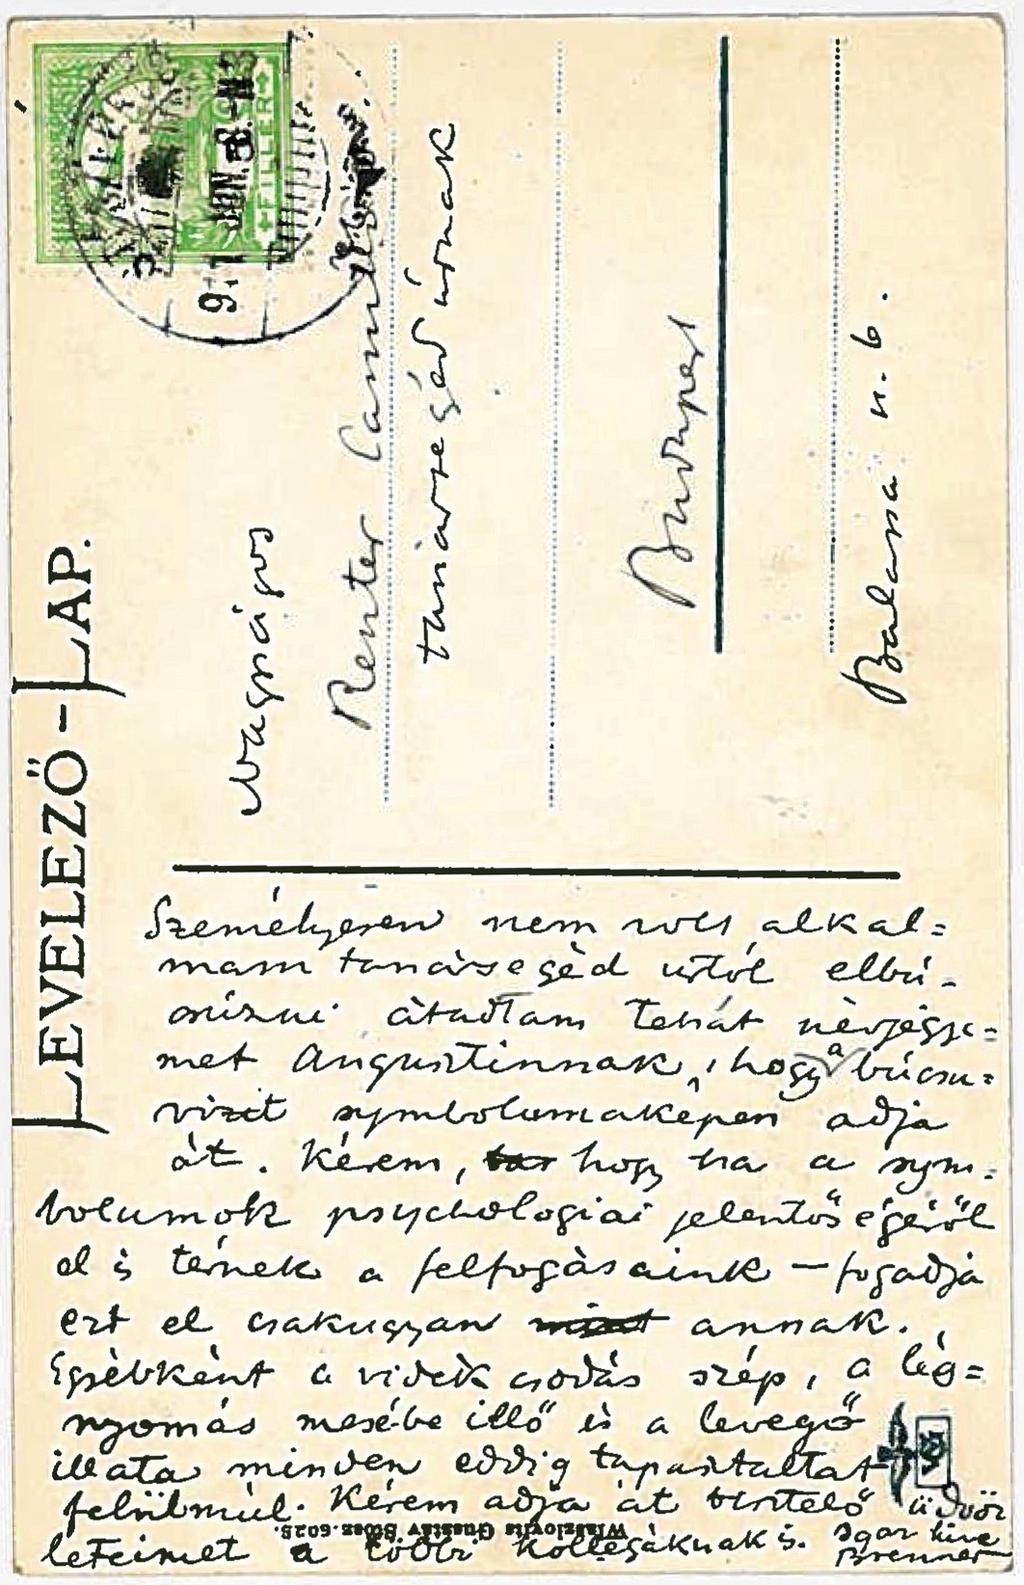 LEVELEZŐ-LAP.
FILLER
Nagyságos
Reuter Camillo
tanársegéd úrnak
Budapest
Balassa u. 6.
Személyesen nem volt alkal=
mam tanársegéd úrtól elbú-
csúzni átadtam tehát névjegye=
met Augustinnak, hogy a búcsu=
vizit symbolumaképen adja
át. Kérem, hogy ha a sym-
bolumok psychologiai jelentőségéről
el is térnek a felfogásaink — fogadja
ezt el csakugyan annak.
Egyébként a vidék csodás szép, a lég=
nyomás mesébe illő és a levegő
illata minden eddig tapasztaltat
felülmúl. Kérem adja át tisztelő üdvöz
leteimet a többi kollegáknak is. igaz híve
Brenner
Wlaszlovits Gusztáv 6025.